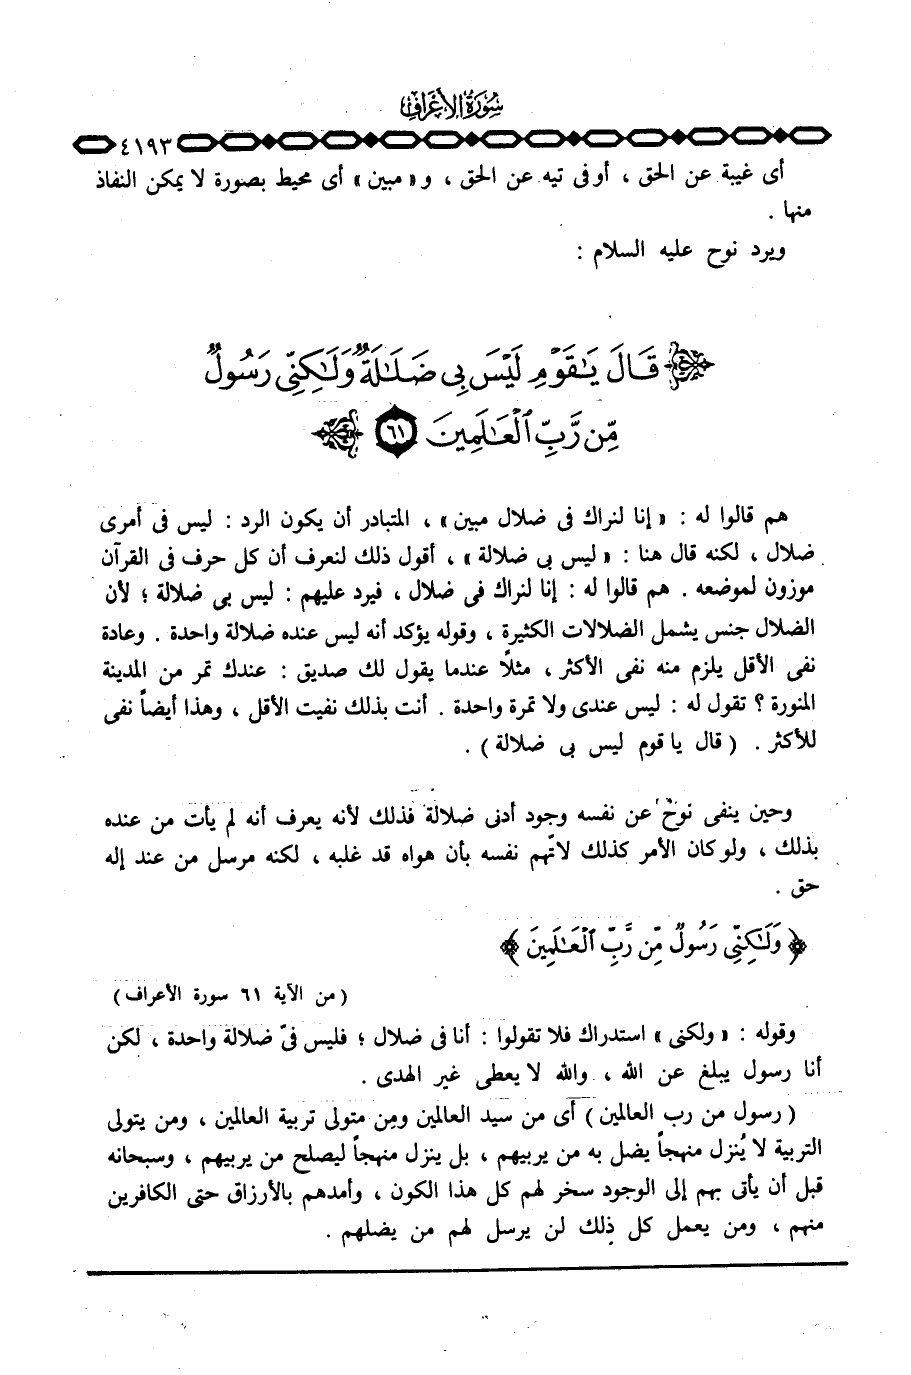 سورة الأعراف
٤١٩٣
أى غيبة عن الحق ، أو فى تيه عن الحق ، و « مبين » أى محيط بصورة لا يمكن النفاذ
منها .
ويرد نوح عليه السلام :
﴿ قَالَ يَـٰقَوْمِ لَيْسَ بِى ضَلَـٰلَةٌ وَلَـٰكِنِّى رَسُولٌ
مِّن رَّبِّ ٱلْعَـٰلَمِينَ ٦١ ﴾
هم قالوا له : « إنا لنراك فى ضلال مبين » ، المتبادر أن يكون الرد : ليس فى أمرى
ضلال ، لكنه قال هنا : « ليس بى ضلالة » ، أقول ذلك لنعرف أن كل حرف فى القرآن
موزون لموضعه . هم قالوا له : إنا لنراك فى ضلال ، فيرد عليهم : ليس بى ضلالة ؛ لأن
الضلال جنس يشمل الضلالات الكثيرة ، وقوله يؤكد أنه ليس عنده ضلالة واحدة . وعادة
نفى الأقل يلزم منه نفى الأكثر ، مثلاً عندما يقول لك صديق : عندك تمر من المدينة
المنورة ؟ تقول له : ليس عندى ولا تمرة واحدة . أنت بذلك نفيت الأقل ، وهذا أيضاً نفى
للأكثر . ( قال يا قوم ليس بى ضلالة ) .
وحين ينفى نوحٌ عن نفسه وجود أدنى ضلالة فذلك لأنه يعرف أنه لم يأت من عنده
بذلك ، ولو كان الأمر كذلك لاتّهم نفسه بأن هواه قد غلبه ، لكنه مرسل من عند إله
حق .
﴿ وَلَـٰكِنِّى رَسُولٌ مِّن رَّبِّ ٱلْعَـٰلَمِينَ ﴾
( من الآية ٦١ سورة الأعراف )
وقوله : « ولكنى » استدراك فلا تقولوا : أنا فى ضلال ؛ فليس فىّ ضلالة واحدة ، لكن
أنا رسول يبلغ عن الله ، والله لا يعطى غير الهدى .
( رسول من رب العالمين ) أى من سيد العالمين ومِن متولى تربية العالمين ، ومن يتولى
التربية لا يُنزل منهجاً يضل به من يربيهم ، بل ينزل منهجاً ليصلح من يربيهم ، وسبحانه
قبل أن يأتى بهم إلى الوجود سخر لهم كل هذا الكون ، وأمدهم بالأرزاق حتى الكافرين
منهم ، ومن يعمل كل ذلك لن يرسل لهم من يضلهم .